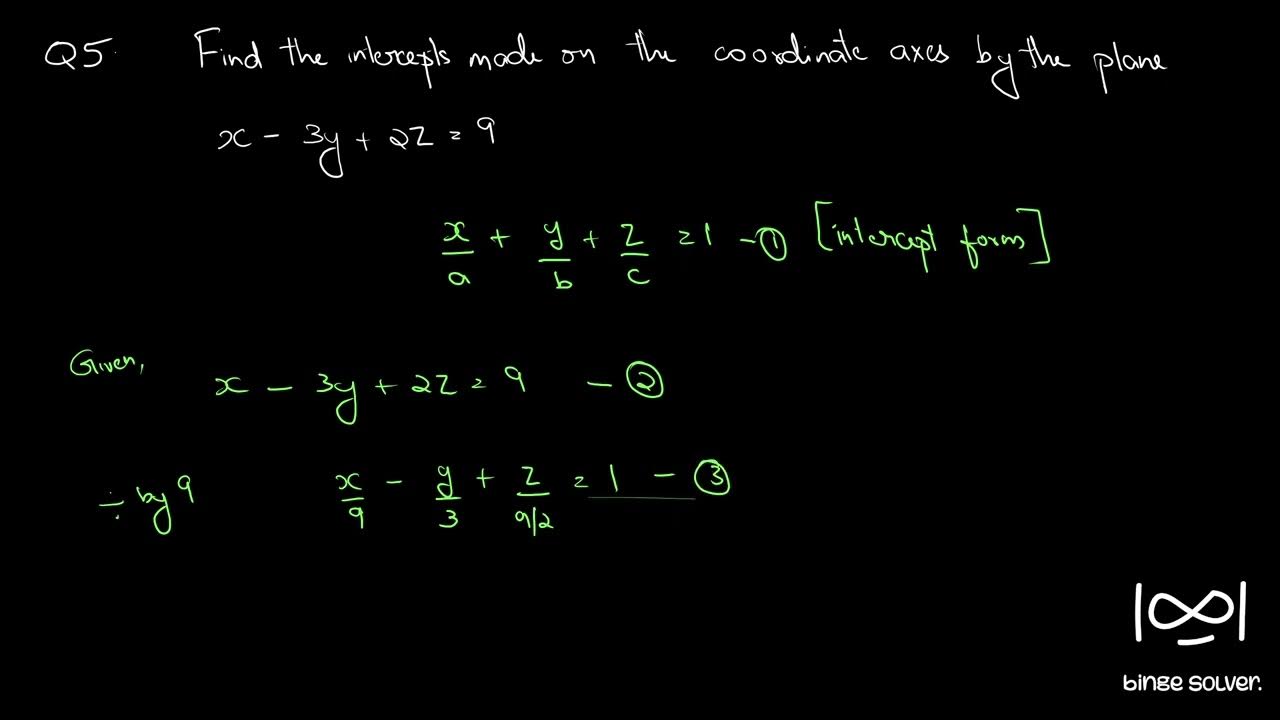 Q5. Find the intercepts made on the coordinate axes by the plane
x - 3y + 2z = 9
x/a + y/b + z/c = 1 - ① [intercept form]
Given,
x - 3y + 2z = 9 - ②
÷ by 9 x/9 - y/3 + z/(9/2) = 1 - ③
binge solver.